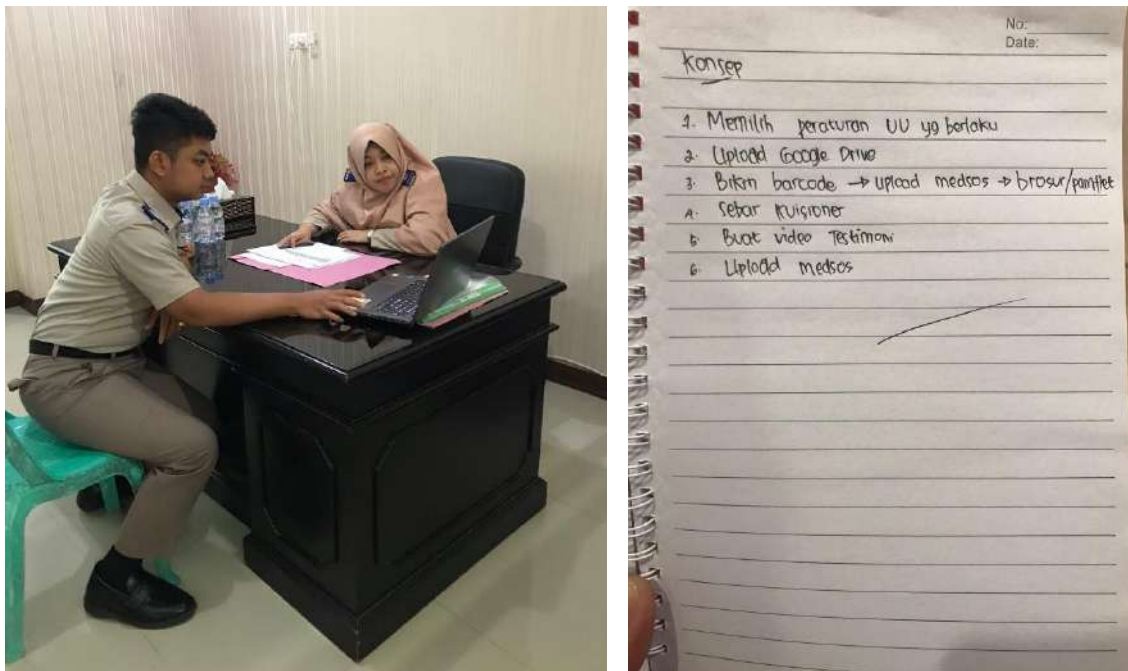 No:
Date:
Konsep
1. Memilih peraturan UU yg berlaku
2. Upload Google Drive
3. Bikin barcode → upload medsos → brosur/pamflet
4. Sebar kuisioner
5. Buat video Testimoni
6. Upload medsos